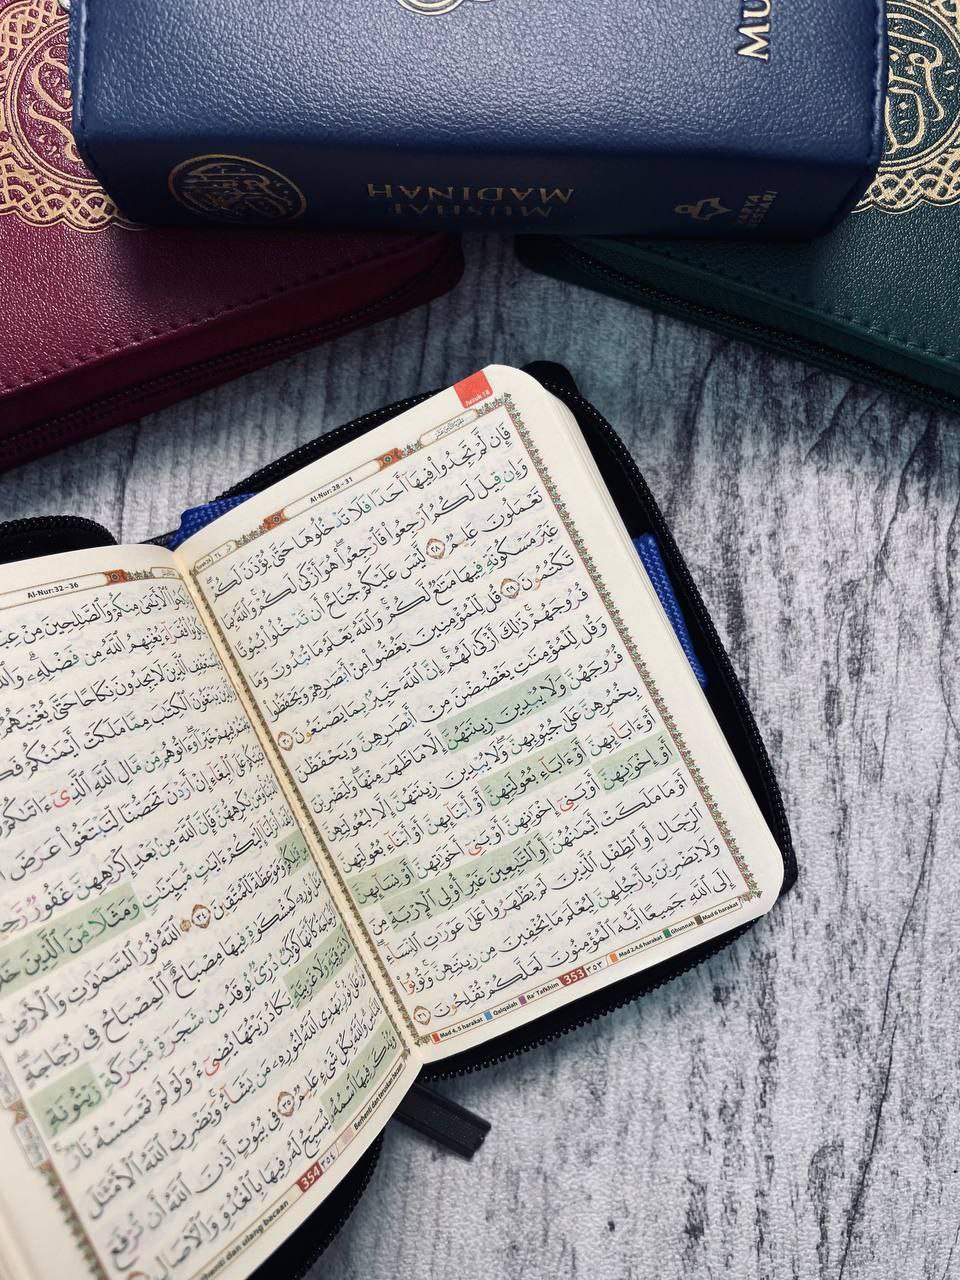 MU
MUSHAF
MADINAH
KARYA
BESTARI
Juzuk 18
Al-Nur: 28-31
فَإِن لَّمْ تَجِدُوا۟ فِيهَآ أَحَدًا فَلَا تَدْخُلُوهَا حَتَّىٰ يُؤْذَنَ لَكُمْ ۖ
وَإِن قِيلَ لَكُمُ ٱرْجِعُوا۟ فَٱرْجِعُوا۟ ۖ هُوَ أَزْكَىٰ لَكُمْ ۚ وَٱللَّهُ بِمَا
تَعْمَلُونَ عَلِيمٌ ٢٨ لَّيْسَ عَلَيْكُمْ جُنَاحٌ أَن تَدْخُلُوا۟ بُيُوتًا
غَيْرَ مَسْكُونَةٍ فِيهَا مَتَٰعٌ لَّكُمْ ۚ وَٱللَّهُ يَعْلَمُ مَا تُبْدُونَ وَمَا
تَكْتُمُونَ ٢٩ قُل لِّلْمُؤْمِنِينَ يَغُضُّوا۟ مِنْ أَبْصَٰرِهِمْ وَيَحْفَظُوا۟
فُرُوجَهُمْ ۚ ذَٰلِكَ أَزْكَىٰ لَهُمْ ۗ إِنَّ ٱللَّهَ خَبِيرٌۢ بِمَا يَصْنَعُونَ ٣٠
وَقُل لِّلْمُؤْمِنَٰتِ يَغْضُضْنَ مِنْ أَبْصَٰرِهِنَّ وَيَحْفَظْنَ
فُرُوجَهُنَّ وَلَا يُبْدِينَ زِينَتَهُنَّ إِلَّا مَا ظَهَرَ مِنْهَا ۖ وَلْيَضْرِبْنَ
بِخُمُرِهِنَّ عَلَىٰ جُيُوبِهِنَّ ۖ وَلَا يُبْدِينَ زِينَتَهُنَّ إِلَّا لِبُعُولَتِهِنَّ
أَوْ ءَابَآئِهِنَّ أَوْ ءَابَآءِ بُعُولَتِهِنَّ أَوْ أَبْنَآئِهِنَّ أَوْ أَبْنَآءِ بُعُولَتِهِنَّ
أَوْ إِخْوَٰنِهِنَّ أَوْ بَنِىٓ إِخْوَٰنِهِنَّ أَوْ بَنِىٓ أَخَوَٰتِهِنَّ أَوْ نِسَآئِهِنَّ
أَوْ مَا مَلَكَتْ أَيْمَٰنُهُنَّ أَوِ ٱلتَّٰبِعِينَ غَيْرِ أُو۟لِى ٱلْإِرْبَةِ مِنَ
ٱلرِّجَالِ أَوِ ٱلطِّفْلِ ٱلَّذِينَ لَمْ يَظْهَرُوا۟ عَلَىٰ عَوْرَٰتِ ٱلنِّسَآءِ ۖ
وَلَا يَضْرِبْنَ بِأَرْجُلِهِنَّ لِيُعْلَمَ مَا يُخْفِينَ مِن زِينَتِهِنَّ ۚ وَتُوبُوٓا۟
إِلَى ٱللَّهِ جَمِيعًا أَيُّهَ ٱلْمُؤْمِنُونَ لَعَلَّكُمْ تُفْلِحُونَ ٣١
Mad 4, 5 harakat Qalqalah Ra' Tafkhim 353 ٣٥٣ Mad 2,4,6 harakat Ghunnah Mad 6 harakat
Al-Nur: 32-36
ٱلْأَيَٰمَىٰ مِنكُمْ وَٱلصَّٰلِحِينَ مِنْ
فُقَرَآءَ يُغْنِهِمُ ٱللَّهُ مِن فَضْلِهِۦ ۗ
ٱلَّذِينَ لَا يَجِدُونَ نِكَاحًا حَتَّىٰ يُغْنِيَهُمُ
يَبْتَغُونَ ٱلْكِتَٰبَ مِمَّا مَلَكَتْ أَيْمَٰنُكُمْ
خَيْرًا ۖ وَءَاتُوهُم مِّن مَّالِ ٱللَّهِ ٱلَّذِىٓ ءَاتَىٰكُمْ
عَلَى ٱلْبِغَآءِ إِنْ أَرَدْنَ تَحَصُّنًا لِّتَبْتَغُوا۟ عَرَضَ
يُكْرِههُّنَّ فَإِنَّ ٱللَّهَ مِنۢ بَعْدِ إِكْرَٰهِهِنَّ غَفُورٌ
أَنزَلْنَآ إِلَيْكُمْ ءَايَٰتٍ مُّبَيِّنَٰتٍ وَمَثَلًا مِّنَ ٱلَّذِينَ
وَمَوْعِظَةً لِّلْمُتَّقِينَ ٣٤ ٱللَّهُ نُورُ ٱلسَّمَٰوَٰتِ وَٱلْأَرْضِ
كَمِشْكَوٰةٍ فِيهَا مِصْبَاحٌ ۖ ٱلْمِصْبَاحُ فِى زُجَاجَةٍ ۖ
كَأَنَّهَا كَوْكَبٌ دُرِّىٌّ يُوقَدُ مِن شَجَرَةٍ مُّبَٰرَكَةٍ زَيْتُونَةٍ
شَرْقِيَّةٍ وَلَا غَرْبِيَّةٍ يَكَادُ زَيْتُهَا يُضِىٓءُ وَلَوْ لَمْ تَمْسَسْهُ نَارٌ ۚ
نُّورٌ عَلَىٰ نُورٍ ۗ يَهْدِى ٱللَّهُ لِنُورِهِۦ مَن يَشَآءُ ۚ وَيَضْرِبُ ٱللَّهُ ٱلْأَمْثَٰلَ
لِلنَّاسِ ۗ وَٱللَّهُ بِكُلِّ شَىْءٍ عَلِيمٌ ٣٥ فِى بُيُوتٍ أَذِنَ ٱللَّهُ أَن تُرْفَعَ
وَيُذْكَرَ فِيهَا ٱسْمُهُۥ يُسَبِّحُ لَهُۥ فِيهَا بِٱلْغُدُوِّ وَٱلْءَاصَالِ
henti dan ulang bacaan 354 ٣٥٤ Berhenti dan teruskan bacaan